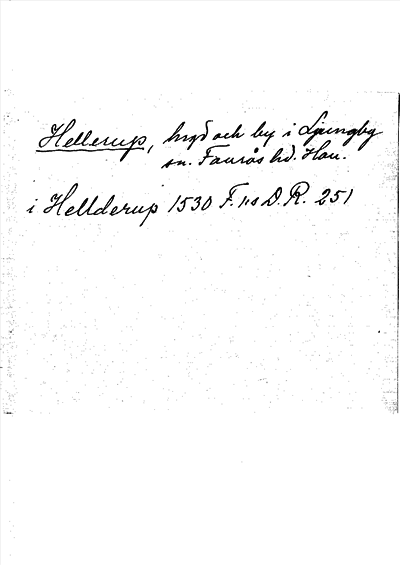 Hellerup, hrgd och by i Ljungby
sn. Faurås hd. Hau.
i Hellderup 1530 F. Is D. R. 251